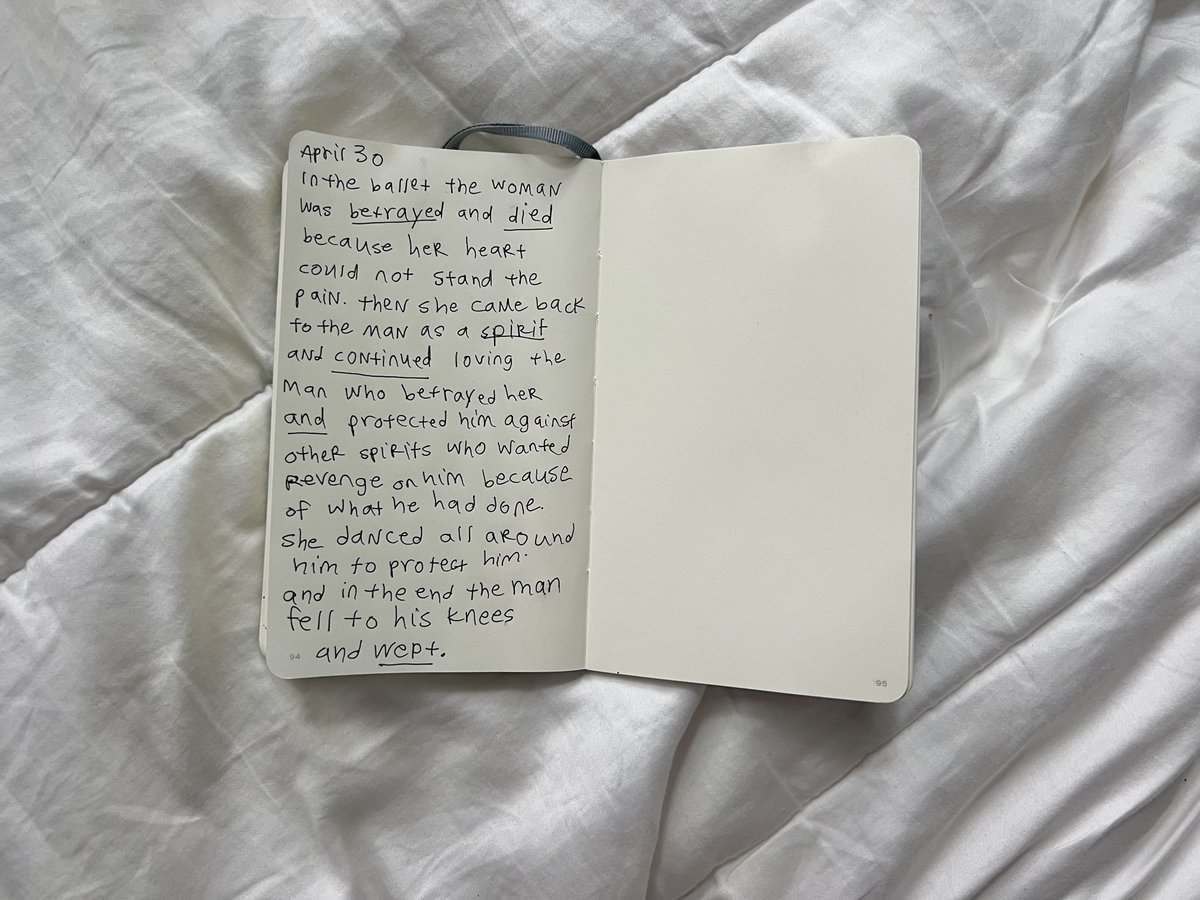 April 30
In the ballet the woman
was betrayed and died
because her heart
could not stand the
pain. then she came back
to the man as a spirit
and continued loving the
man who betrayed her
and protected him against
other spirits who wanted
revenge on him because
of what he had done.
she danced all around
him to protect him.
and in the end the man
fell to his knees
and wept.
94
95